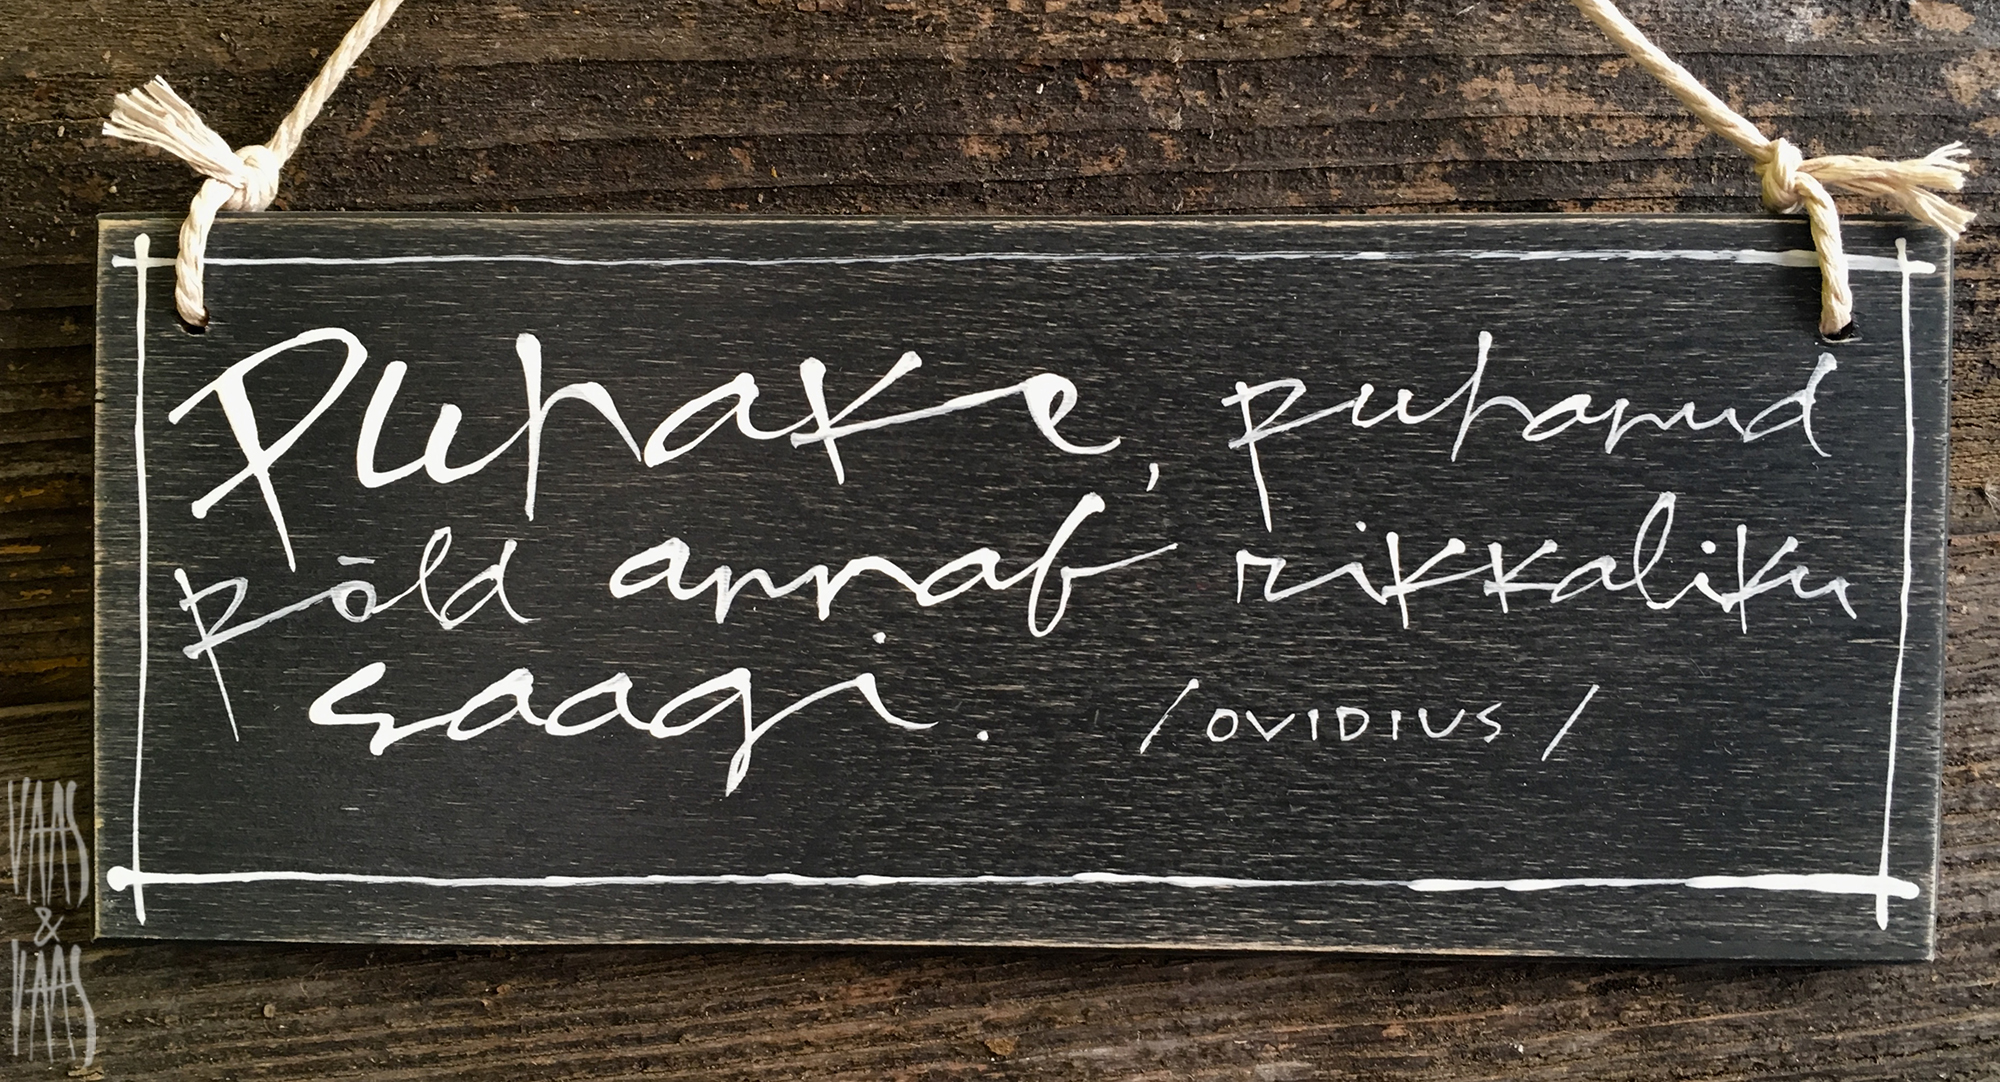 Puhake, puhanud
põld annab rikkaliku
saagi. /OVIDIUS/
VAAS
&
VAAS